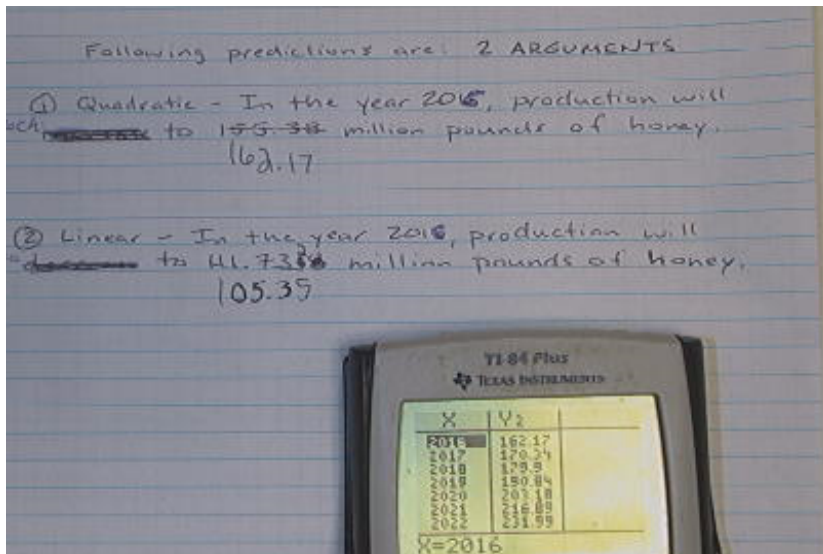 Following predictions are: 2 ARGUMENTS
① Quadratic - In the year 2016, production will
to 155.38 million pounds of honey.
162.17
② Linear - In the year 2016, production will
to million pounds of honey.
105.39
TI-84 Plus
TEXAS INSTRUMENTS
X Y2
2016 162.17
2017 170.34
2018 179.9
2019 190.84
2020 203.18
2021 216.89
2022 231.99
X=2016